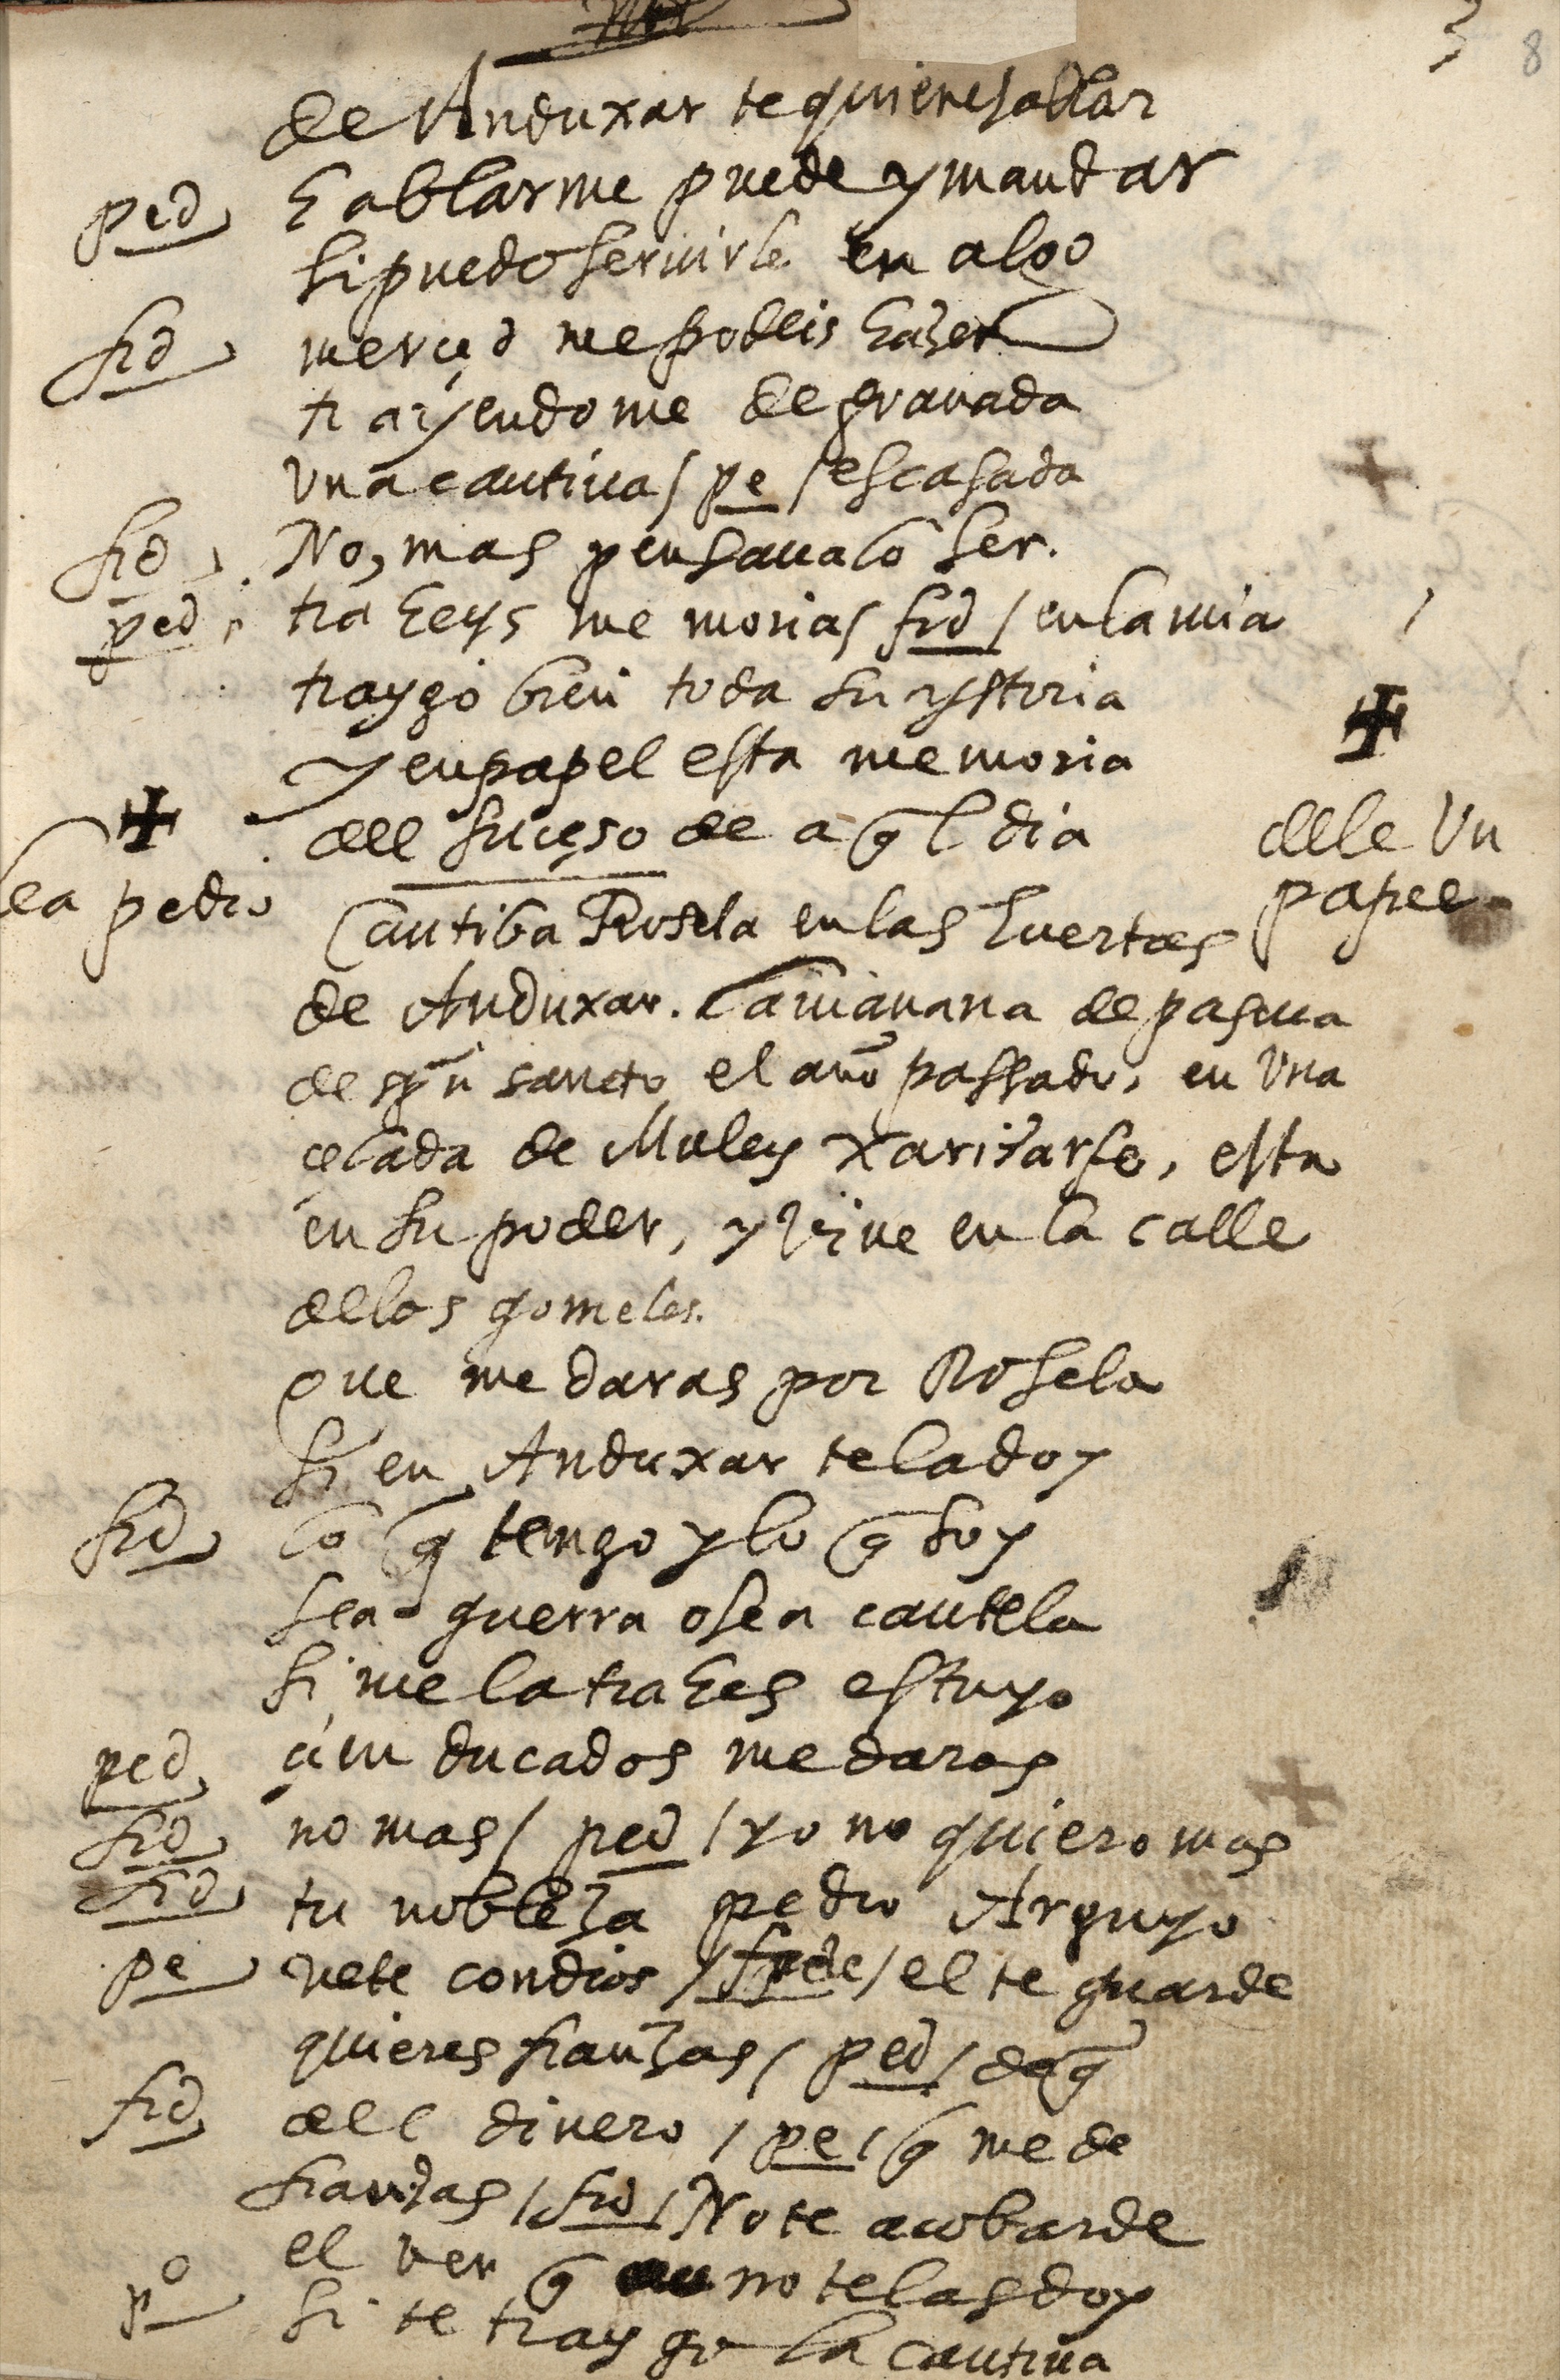 3 8
de Anduxar te quiere hablar
ped hablarme puede y mandar
si puedo seruirle en algo
fid merçed me podeis hazer
trayendome de granada
Vna cautiua / pe / es casada
fid No, mas pensaualo ser.
ped traheys memoria / fid / en la mia
traygo bien toda su ystoria
y en papel esta memoria
del suçeso de aql dia dele Vn
lea pedro papel
Cautiba Rosela en las huertas
de Anduxar. La mañana de pasqua
de spũ sancto el año passado, en Vna
çelada de Muley Xarifarfe, esta
en su poder, y Viue en la calle
de los gomeles.
que me daras por Rosela
si en Anduxar te la doy
fid lo q̃ tengo y lo q̃ soy
sea guerra o sea cautela
si me la trahes es tuyo
ped çien ducados me daras
fid no mas / ped / yo no quiero mas
fid tu nobleza pedro Arguyo
pe vete con dios / fide / el te guarde
quieres fianzas / ped / de q̃
fid del dinero / pe / q̃ me de
fianzas / fid / No te acobarde
el ver q̃ no te las doy
p° si te traygo la cautiua